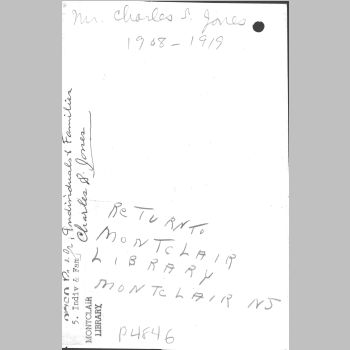 Mr. Charles S. Jones
1908-1919
Individuals & Families
Charles S. Jones
5. Indiv & Fam
MONTCLAIR
LIBRARY
RETURN TO
MONTCLAIR
LIBRARY
MONTCLAIR NJ
P4846